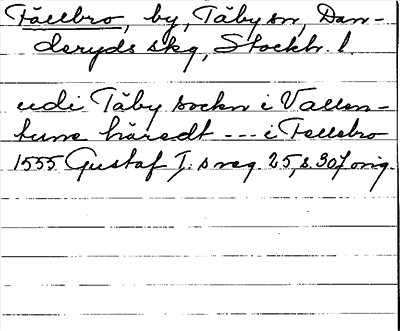 Fällbro, by, Täby sn, Dan-
deryds skg, Stockh. l.
udi Täby socken i Vallen-
tuna häredt --- i Fellebro
1555 Gustaf I:s reg. 25, s. 307 orig.